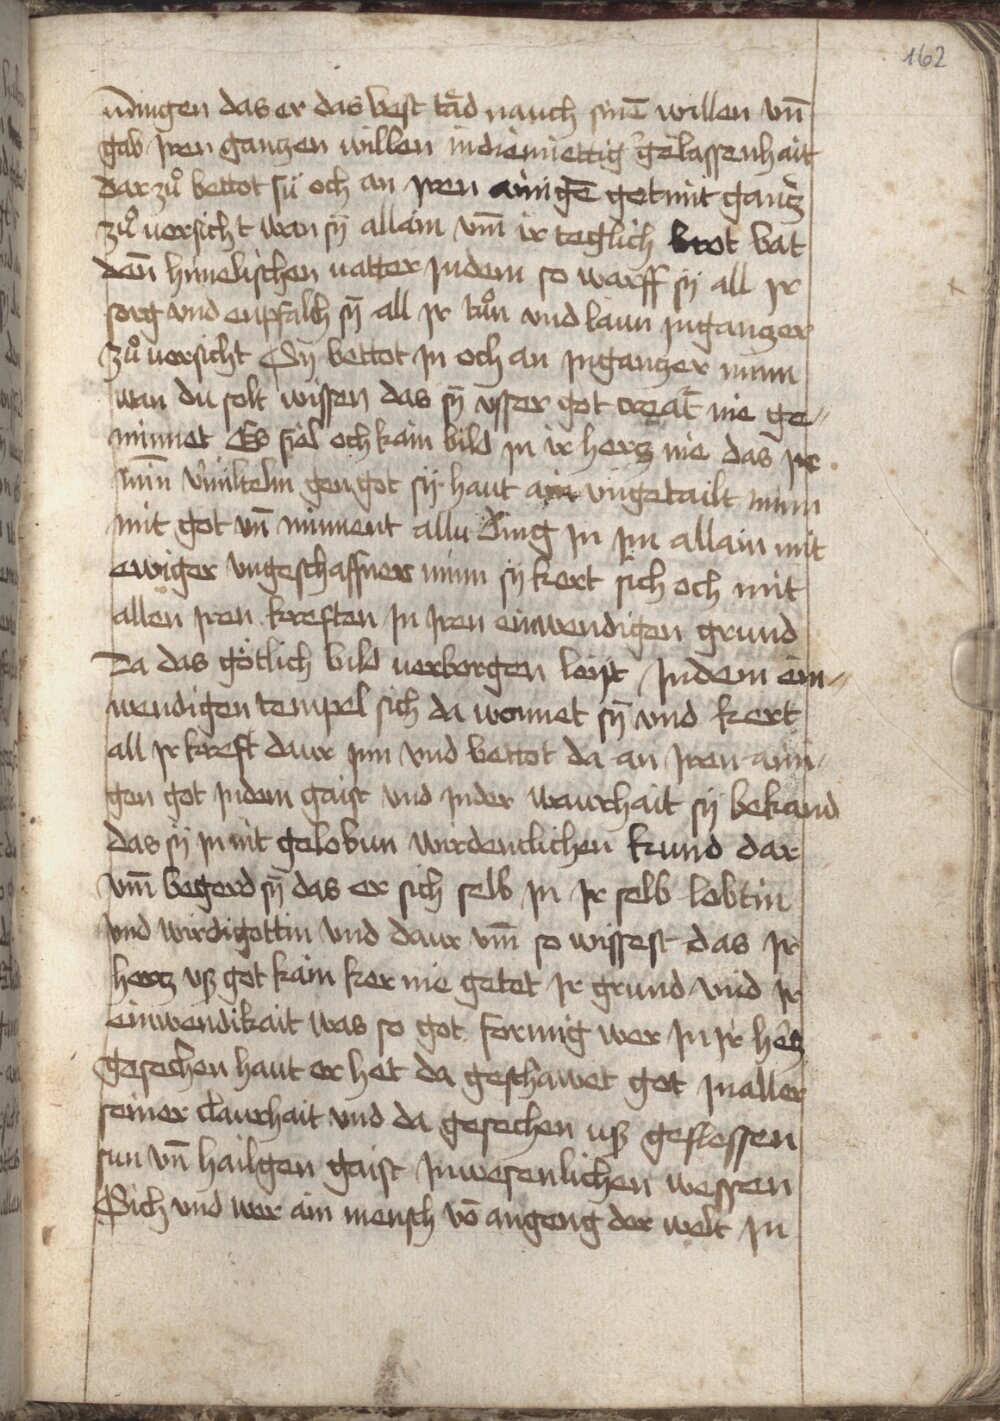 162
dingen das er das best tåd nauch sinē willen vn̄
gab Iren gantzen willen in diemuettig gelassenhait
dar zů bettot sü och an Iren ainigē got mit gantz
zů uersicht wan sÿ allain vm̄ ir teglich brot bat
den̄ himelischen uatter Indem so warff sÿ all Ir
sorg vnd enpfalch sÿ all Ir tůn vnd laun In gantzer
zů uersicht Sÿ bettot In och an In gantzer minn
wan du solt wissen das sÿ vsser got creat̄ nie ge-
minnet Es fiel och kain bild In ir hertz nie das Ir
min̄ vmiteln gen got sÿ haut ain vngetailt minn
mit got vn̄ minnent allu ding In Im allain mit
ewiger vngeschaffner minn sÿ kert sich och mit
allen Iren kreften In Iren einwendigen grund
Da das götlich bild uerborgen leist / Indem ein-
wendigen tempel sich da wonnet sÿ vnd kert
all Ir kreft daur Inn vnd bettot da an Iren aini-
gen got Indem gaist vnd Inder waurhait sÿ bekand
das sÿ In nit geloben wirdenclichen kund dar
vm̄ begerd sÿ das er sich selb In Ir selb lobtin
vnd wirdigottin vnd daur vm̄ so wissest das Ir
hertz vß got kain ker nie getet Ir grund vnd Ir
einwendikait was so got formig wer In Ir hertz
gesechen haut er het da geschawet got In aller
seiner claurhait vnd da gesechen uß geflossen
sun vn̄ hailgen gaist In wesenlichen wessen
Sich vnd wer ain mensch vō angeng der welt In